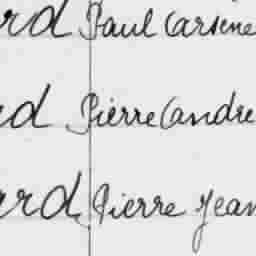 ard Paul Carsène
rd Pierre Candre
ard Pierre Jean